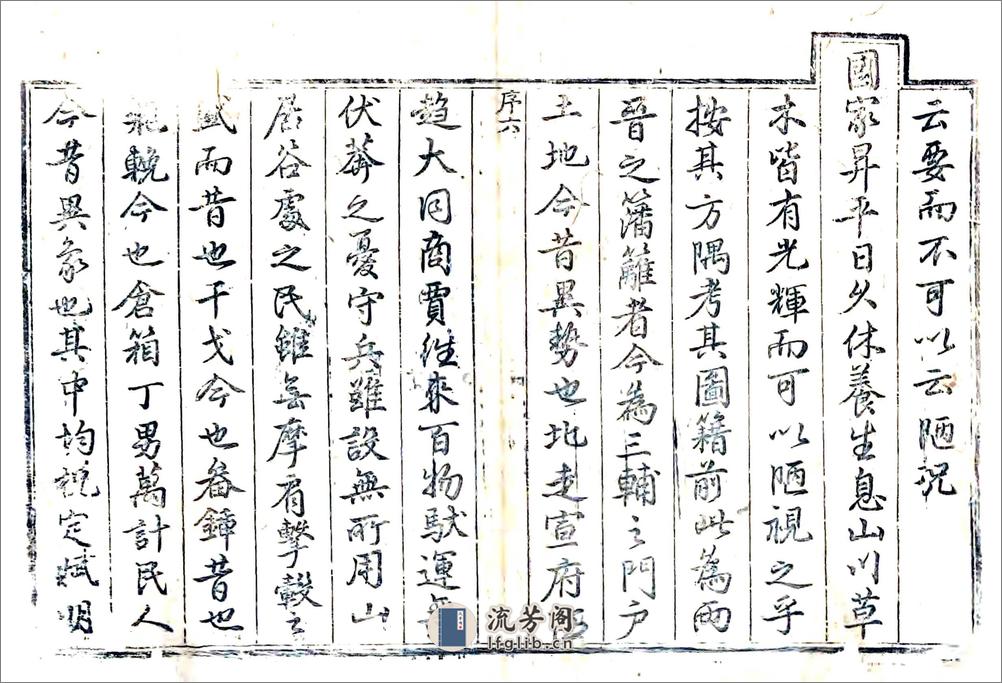 云要而不可以云陋況
國家昇平日久休養生息山川草
木皆有光輝而可以陋視之乎
按其方隅考其圖籍前此為兩
晉之藩籬者今為三輔之門户
土地今昔異勢也北走宣府
序六
趋大同商賈往來百物馱運
伏莽之憂守兵雖設無所用山
居谷處之民雖無摩肩擊轂之
盛而昔也干戈今也畚鍤昔也
輓今也倉箱丁男萬計民人
今昔異象也其中均稅定賦明
流芳阁
lfglib.cn